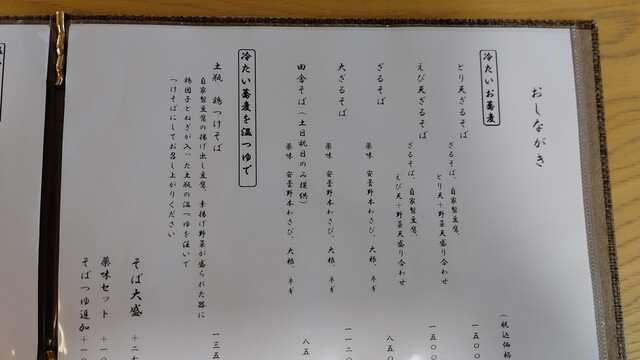 おしながき
(税込価格
冷たいお蕎麦
とり天ざるそば
ざるそば、自家製豆腐、
とり天+野菜天盛り合わせ
一五〇〇
えび天ざるそば
ざるそば、自家製豆腐、
えび天+野菜天盛り合わせ
一五〇
ざるそば
薬味 安曇野本わさび、大根、ネギ
八五
大ざるそば
薬味 安曇野本わさび、大根、ネギ
一一二
田舎そば(土日祝日のみ提供)
薬味 安曇野本わさび、大根、ネギ
八五
冷たい蕎麦を温つゆで
土瓶 鶏つけそば
自家製豆腐の揚げ出し豆腐、素揚げ野菜が盛られた器に
鶏団子とねぎが入った土瓶の温つゆを注いで
つけそばにしてお召し上がりください
一三五
そば大盛 +二
薬味セット +一〇
そばつゆ追加 +一